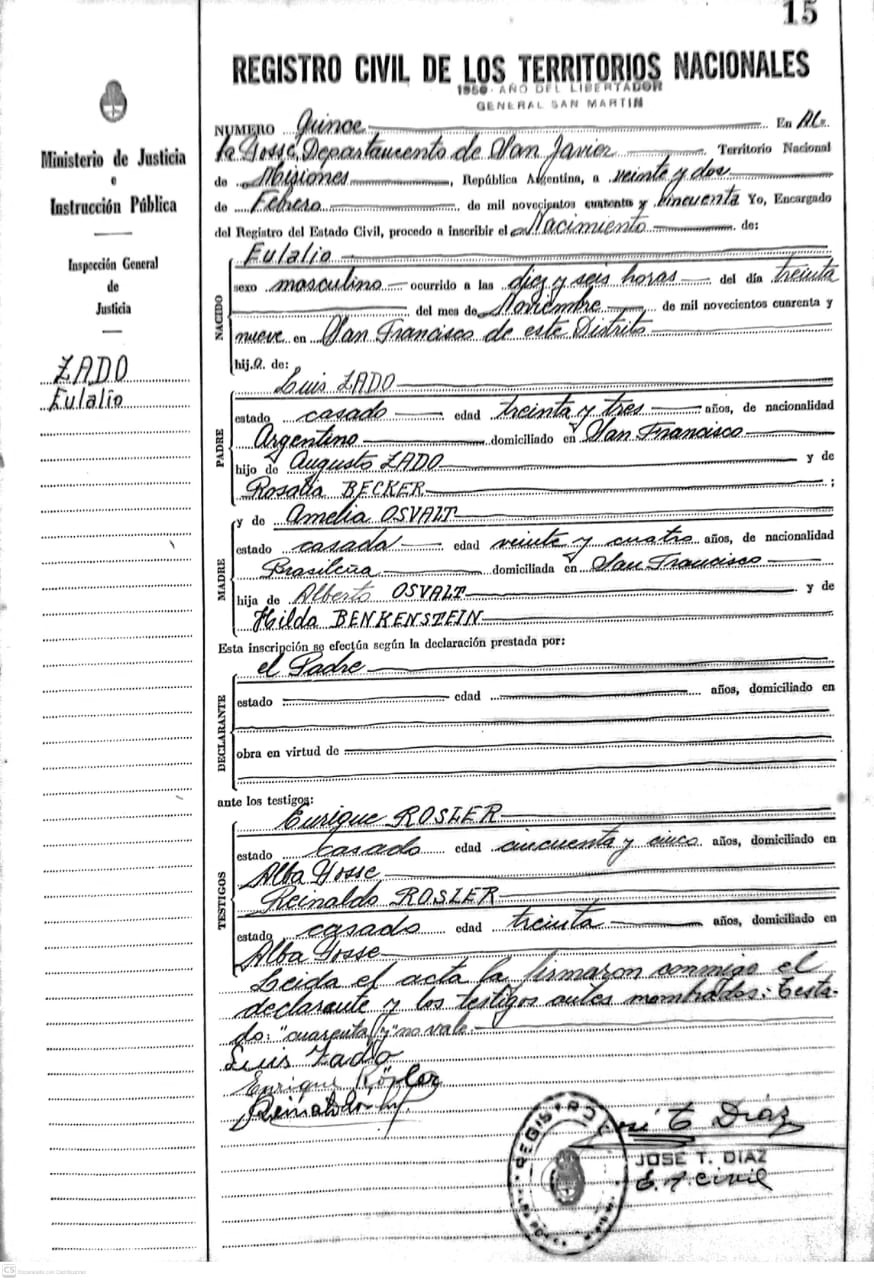 15
REGISTRO CIVIL DE LOS TERRITORIOS NACIONALES
1950 - AÑO DEL LIBERTADOR
GENERAL SAN MARTIN
Ministerio de Justicia
e
Instrucción Pública
Inspección General
de
Justicia
ZADO
Eulalio
NUMERO Quince En Al-
ba Posse, Departamento de San Javier Territorio Nacional
de Misiones, República Argentina, a veinte y dos
de Febrero de mil novecientos cuarenta y cincuenta Yo, Encargado
del Registro del Estado Civil, procedo a inscribir el Nacimiento de:
NACIDO
Eulalio
sexo masculino ocurrido a las diez y seis horas del día treinta
del mes de Noviembre de mil novecientos cuarenta y
nueve en San Francisco de este Distrito
hij.o. de:
PADRE
Luis ZADO
estado casado edad treinta y tres años, de nacionalidad
Argentino domiciliado en San Francisco
hijo de Augusto ZADO y de
Rosalia BECKER ;
MADRE
y de Amelia OSVALT
estado casada edad veinte y cuatro años, de nacionalidad
Brasileña domiciliada en San Francisco
hija de Alberto OSVALT y de
Hilda BENKENSTEIN
Esta inscripción se efectúa según la declaración prestada por:
DECLARANTE
el Padre
estado edad años, domiciliado en
obra en virtud de
ante los testigos:
TESTIGOS
Enrique ROSLER
estado casado edad cincuenta y cinco años, domiciliado en
Alba Posse
Reinaldo ROSLER
estado casado edad treinta años, domiciliado en
Alba Posse
Leida el acta la firmaron conmigo el
declarante y los testigos antes nombrados: Testa-
do: "cuarenta y" no vale.
Luis Zado
Enrique Rösler
Reinaldo
José T Diaz
JOSE T. DIAZ
E. R. Civil
REGISTRO
CS Escaneado con CamScanner